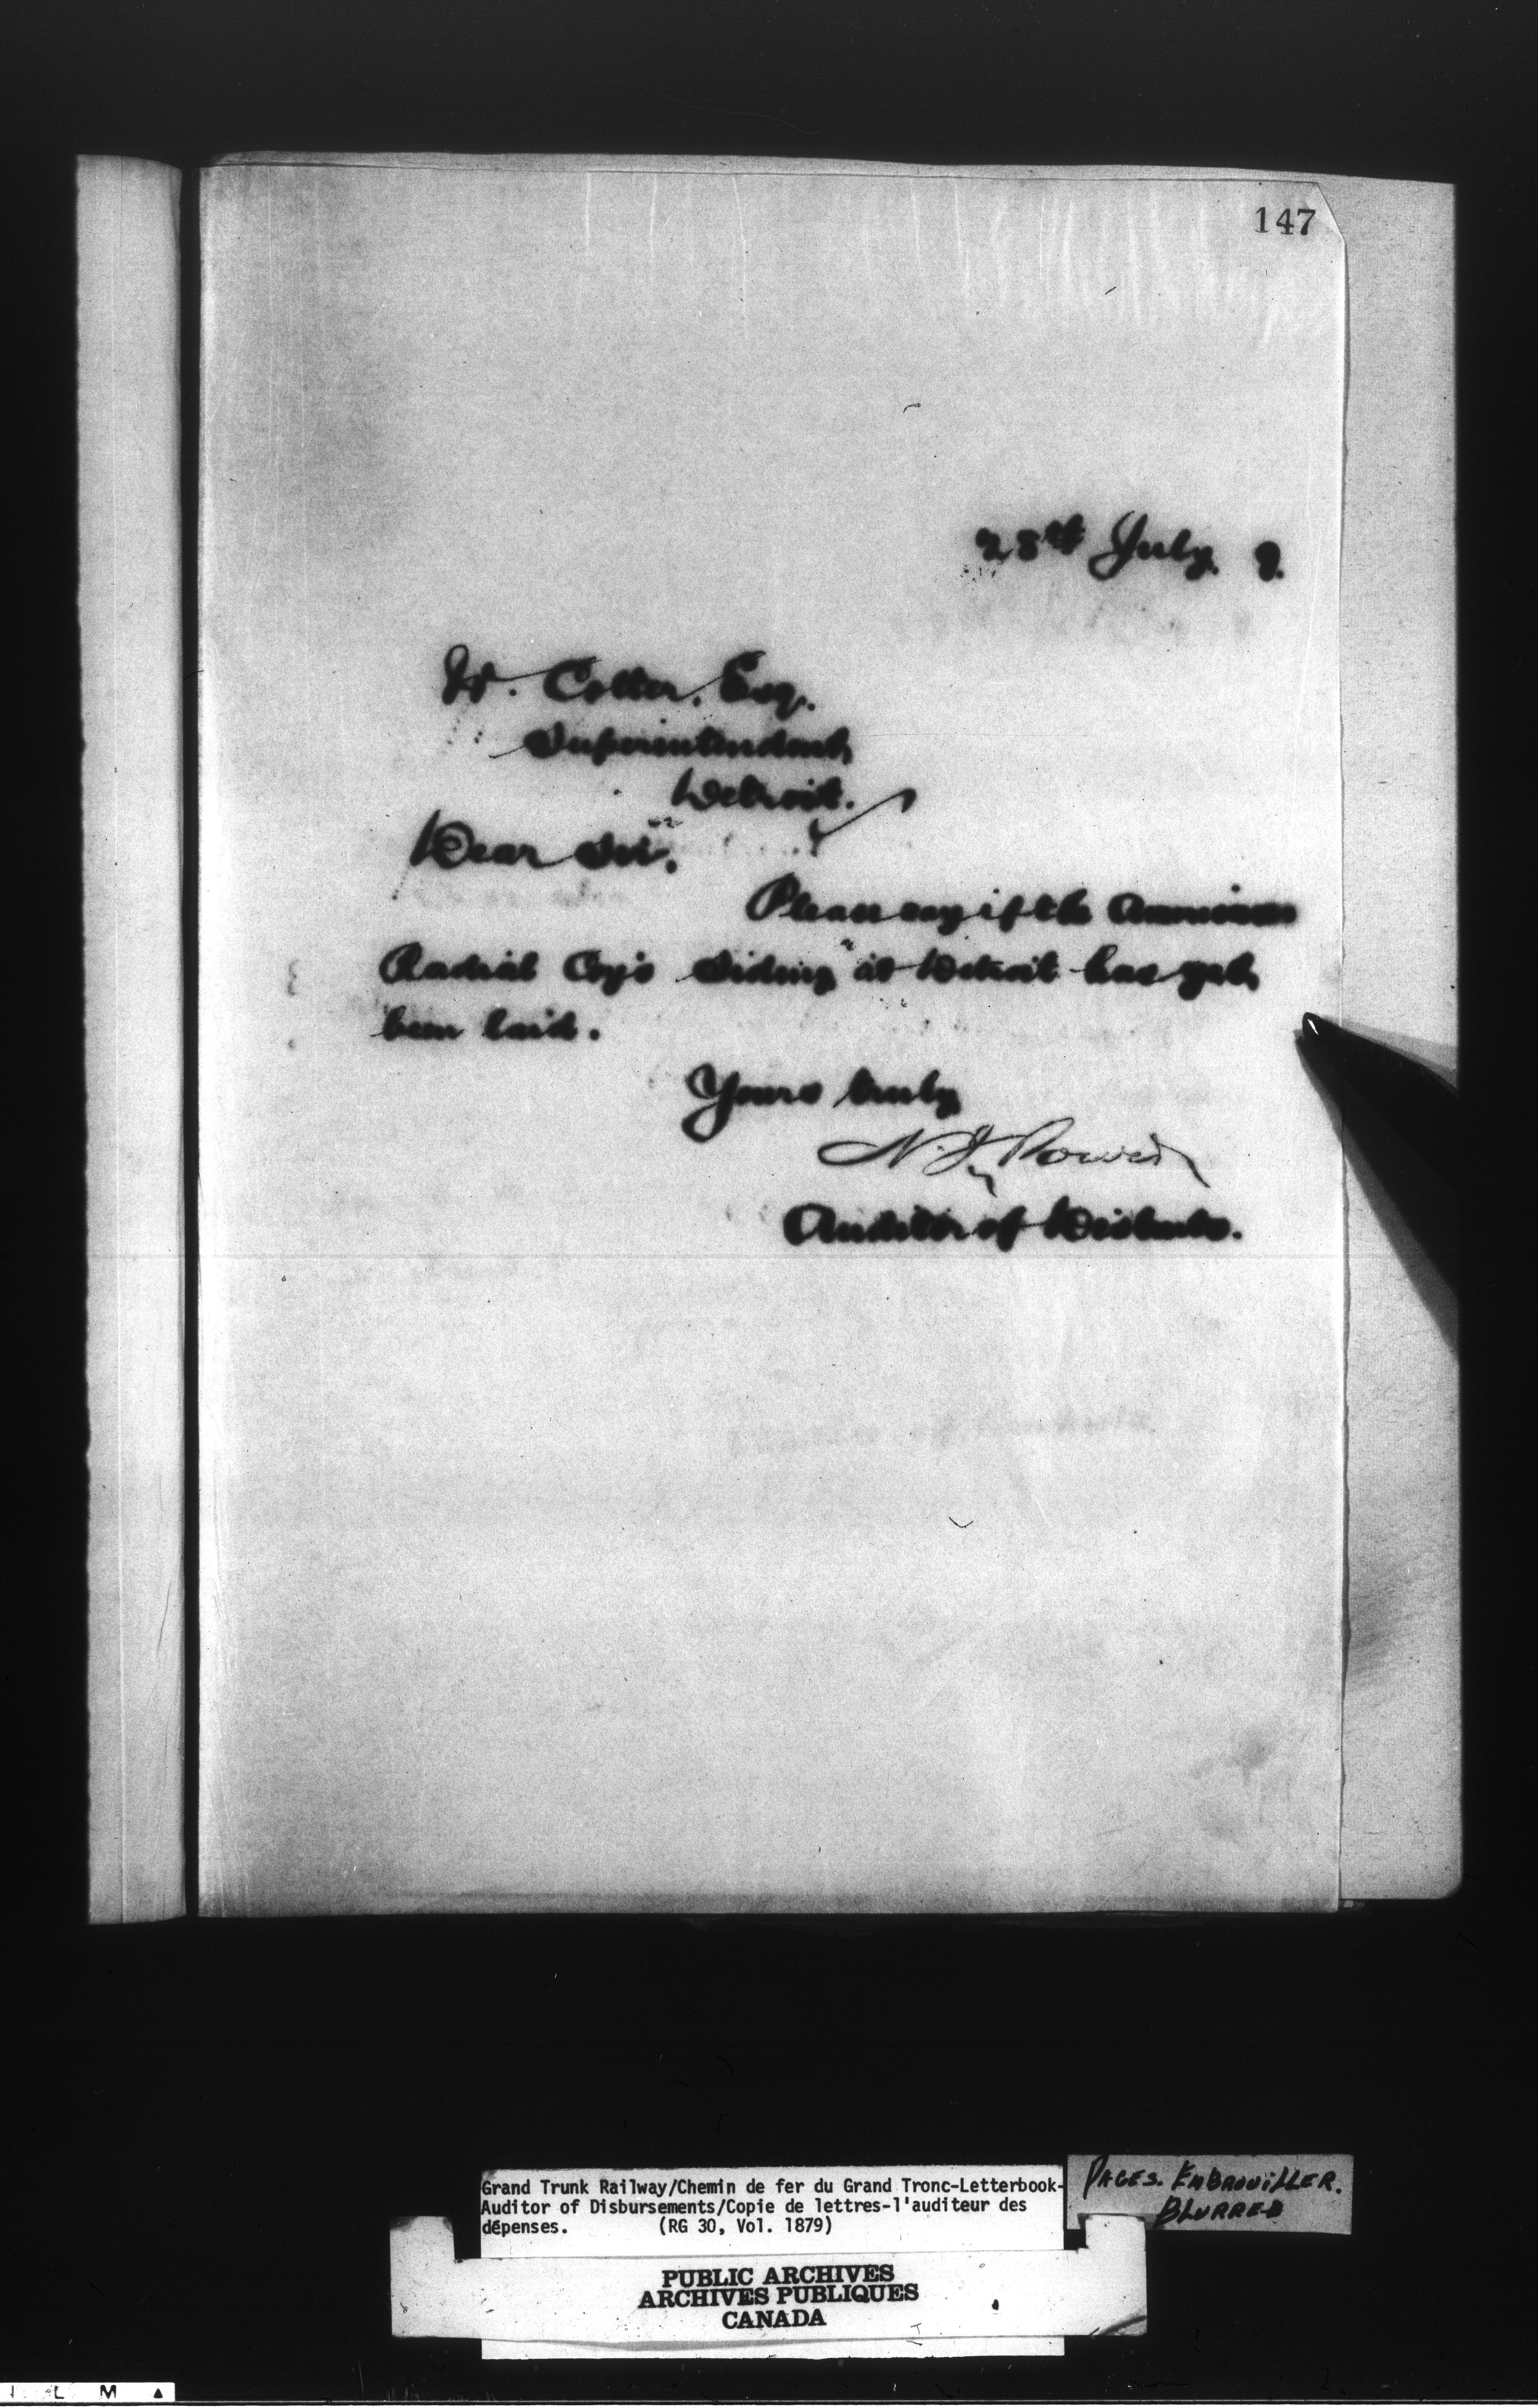 147
28th July. 9.
W. Cotter, Esq.
Superintendent,
Detroit.
Dear Sir,
Please say if the American
Coy's Siding at Detroit has yet
been laid.
Yours truly
N. J. Power
Auditor of Disbmts.
Grand Trunk Railway/Chemin de fer du Grand Tronc-Letterbook-
Auditor of Disbursements/Copie de lettres-l'auditeur des
dépenses. (RG 30, Vol. 1879)
PAGES. EMBROUILLER.
BLURRED
PUBLIC ARCHIVES
ARCHIVES PUBLIQUES
CANADA
L M